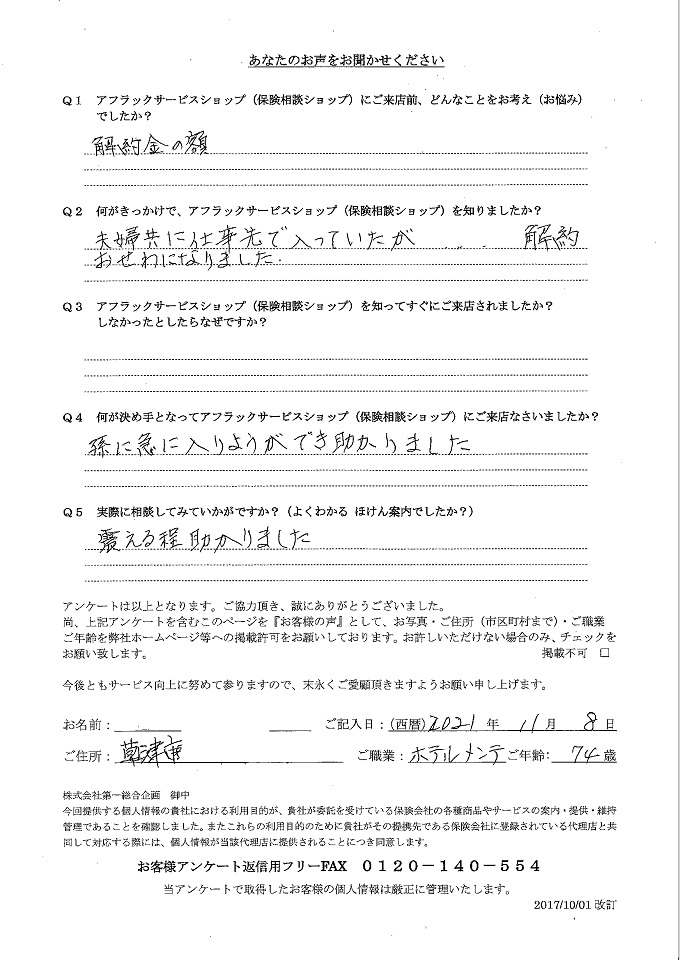 あなたのお声をお聞かせください
Q1 アフラックサービスショップ(保険相談ショップ)にご来店前、どんなことをお考え(お悩み)
でしたか?
解約金の額
Q2 何がきっかけで、アフラックサービスショップ(保険相談ショップ)を知りましたか?
夫婦共に仕事先で入っていたが ..... 解約
おせわになりました.
Q3 アフラックサービスショップ(保険相談ショップ)を知ってすぐにご来店されましたか?
しなかったとしたらなぜですか?
Q4 何が決め手となってアフラックサービスショップ(保険相談ショップ)にご来店なさいましたか?
孫に急に入りようができ助かりました
Q5 実際に相談してみていかがですか?(よくわかる ほけん案内でしたか?)
震える程助かりました
アンケートは以上となります。ご協力頂き、誠にありがとうございました。
尚、上記アンケートを含むこのページを『お客様の声』として、お写真・ご住所(市区町村まで)・ご職業
ご年齢を弊社ホームページ等への掲載許可をお願いしております。お許しいただけない場合のみ、チェックを
お願い致します。 掲載不可 □
今後ともサービス向上に努めて参りますので、末永くご愛顧頂きますようお願い申し上げます。
お名前: ご記入日:(西暦)2021年 11月 8日
ご住所:草津市 ご職業:ホテルメンテ ご年齢: 74歳
株式会社第一総合企画 御中
今回提供する個人情報の貴社における利用目的が、貴社が委託を受けている保険会社の各種商品やサービスの案内・提供・維持
管理であることを確認しました。またこれらの利用目的のために貴社がその提携先である保険会社に登録されている代理店と共
同して対応する際には、個人情報が当該代理店に提供されることにつき同意します。
お客様アンケート返信用フリーFAX 0120-140-554
当アンケートで取得したお客様の個人情報は厳正に管理いたします。
2017/10/01 改訂